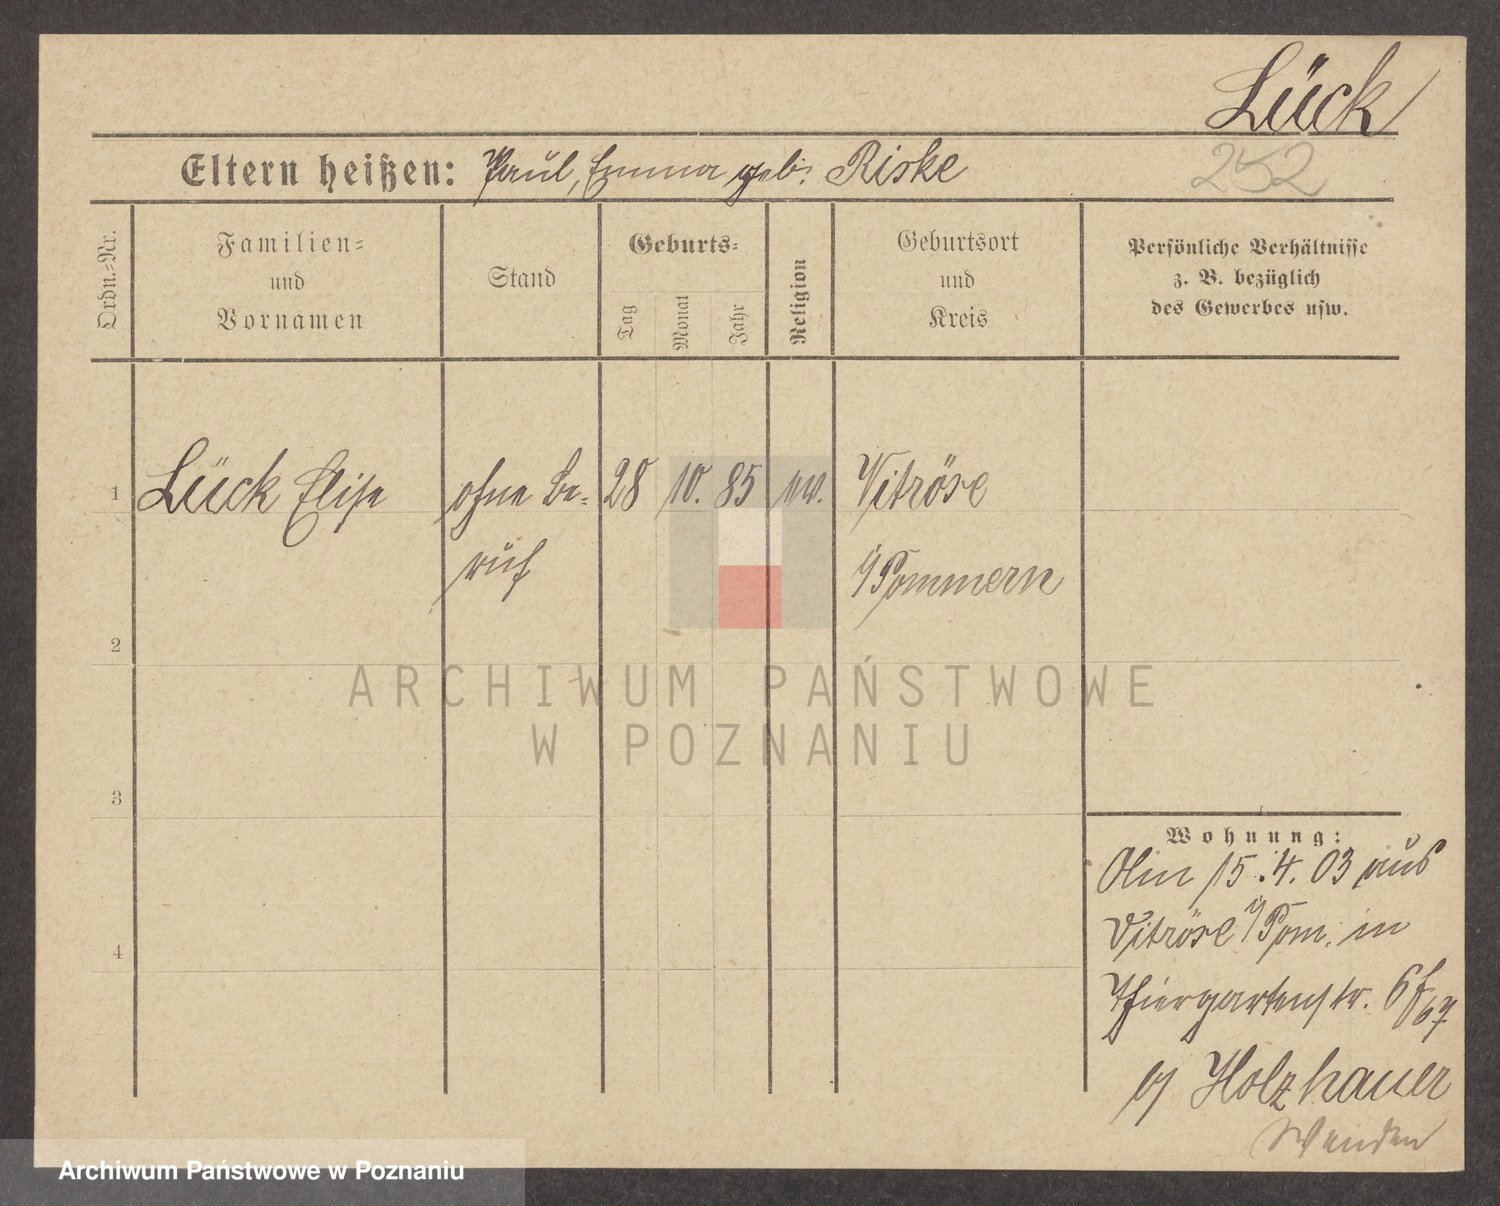 Lück
Eltern heißen: Paul, Emma geb. Riske
252
Ordn.-Nr.
Familien-
und
Vornamen
Stand
Geburts-
Tag
Monat
Jahr
Religion
Geburtsort
und
Kreis
Persönliche Verhältnisse
z. B. bezüglich
des Gewerbes usw.
1 Lück Elise ohne Be- 28 10. 85 ev. Vitröse
ruf i/Pommern
2
3
4
Wohnung:
Am 15.4.03 aus
Vitröse i/Pom. in
Thiergartenstr.
b/ Holzhauer
ARCHIWUM PAŃSTWOWE
W POZNANIU
Archiwum Państwowe w Poznaniu